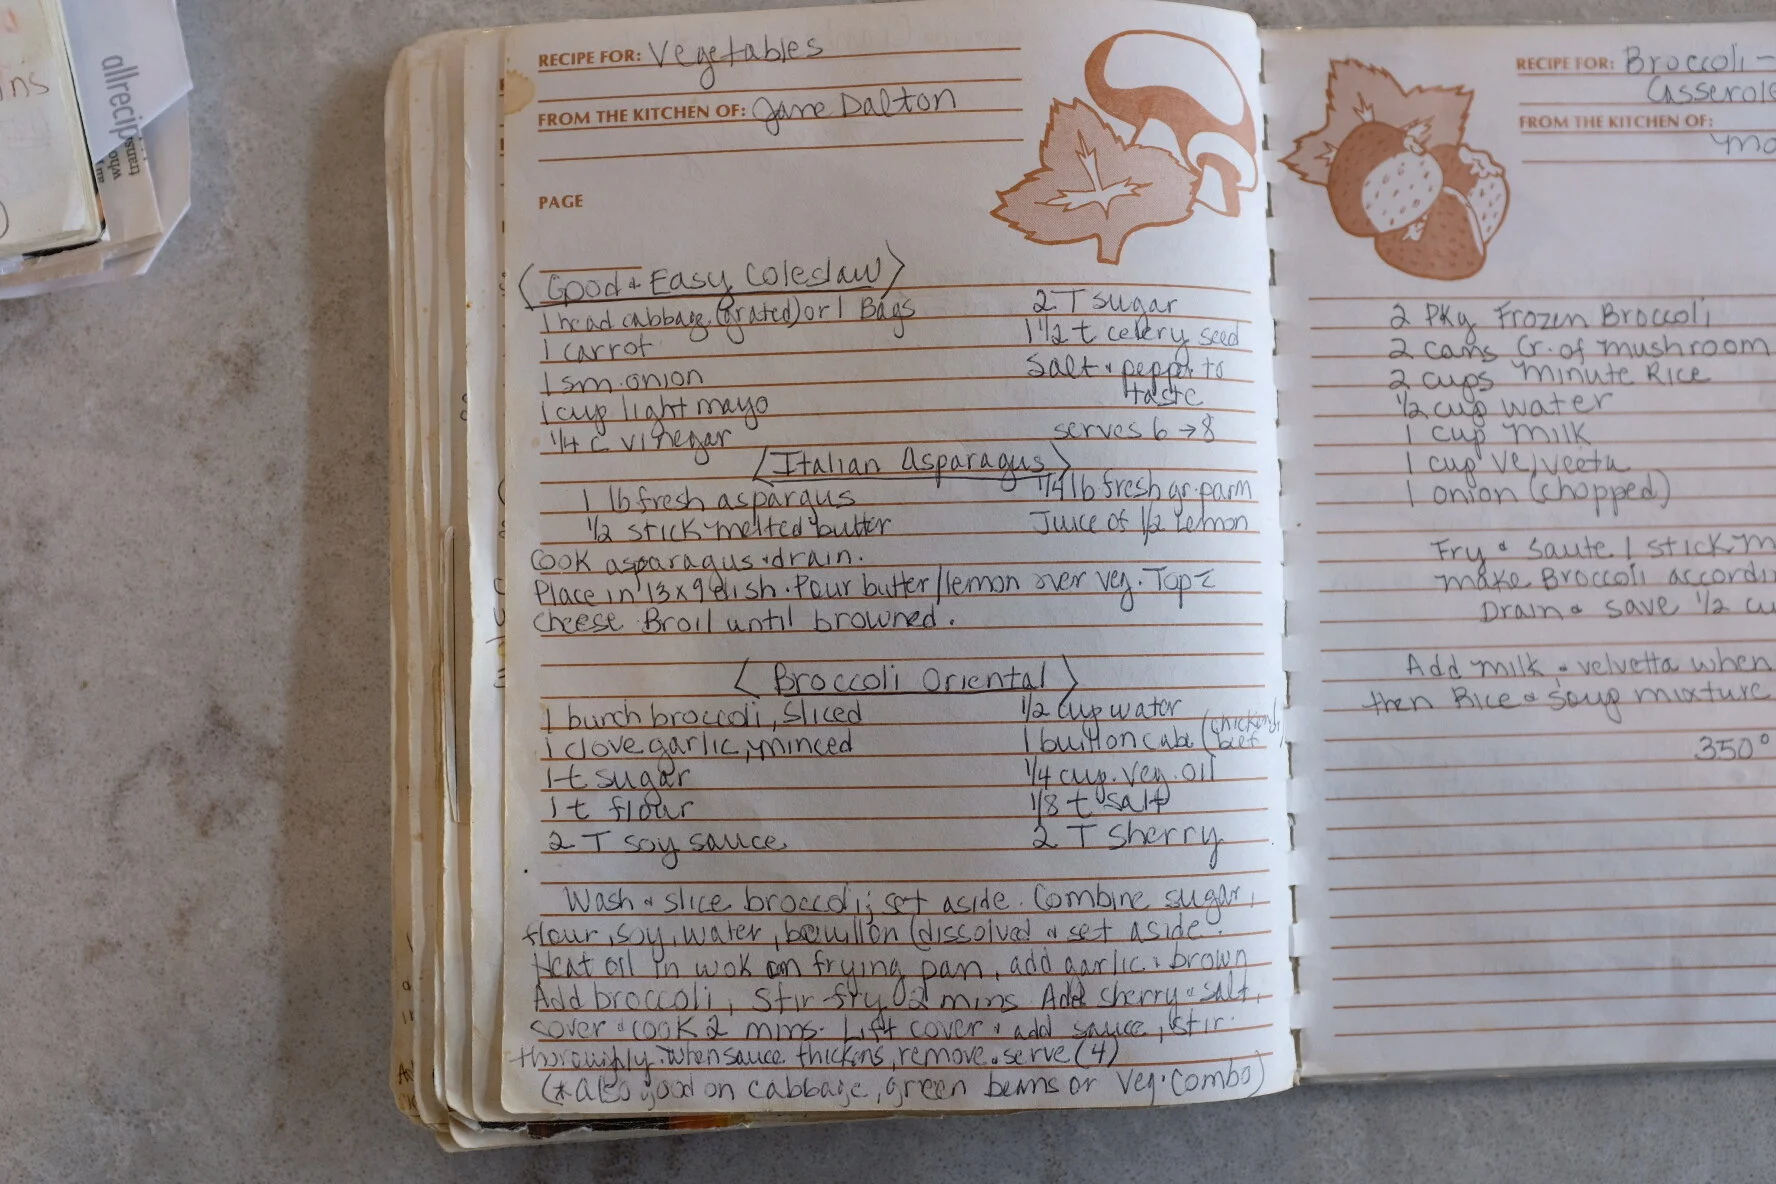 ins
allrecip
trans
who
RECIPE FOR: Vegetables
FROM THE KITCHEN OF: Jane Dalton
PAGE
Good & Easy Coleslaw
1 head cabbage (grated) or 1 Bags
1 carrot
1 sm. onion
1 cup light mayo
1/4 c vinegar
2 T sugar
1 1/2 t celery seed
Salt & pepper to
taste
serves 6 → 8
Italian Asparagus
1 lb fresh aspargus
1/2 stick melted butter
1/4 lb fresh gr. parm
Juice of 1/2 lemon
Cook asparagus & drain.
Place in 13 x 9 dish. Pour butter/lemon over veg. Top c̄
cheese. Broil until browned.
Broccoli Oriental
1 bunch broccoli, sliced
1 clove garlic, minced
1 t sugar
1 t flour
2 T soy sauce
1/2 cup water
1 buillon cube (chicken,
beef
1/4 cup veg. oil
1/8 t salt
2 T Sherry
Wash & slice broccoli; set aside. Combine sugar,
flour, soy, water, bouillon (dissolved & set aside.
Heat oil in wok on frying pan, add garlic & brown
Add broccoli, stir-fry 2 mins. Add sherry & salt,
cover & cook 2 mins. Lift cover & add sauce, stir
thoroughly. When sauce thickens, remove & serve (4)
(* also good on cabbage, green beans or veg. combo)
RECIPE FOR: Broccoli -
Casserole
FROM THE KITCHEN OF:
mo
2 Pkg Frozen Broccoli
2 cans Cr. of mushroom
2 cups Minute Rice
1/2 cup water
1 cup milk
1 cup Velveeta
1 onion (chopped)
Fry & saute 1 stick m
make Broccoli accordi
Drain & save 1/2 cu
Add milk & velvetta when
then Rice & soup mixture
350°